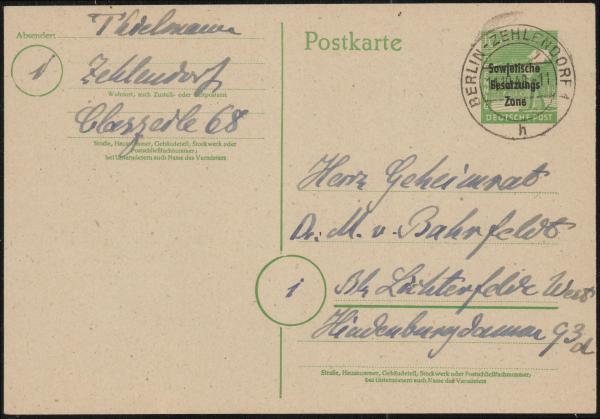 Absender:
Thielmann
1
Zehlendorf
Wohnort, auch Zustell- oder Leitpostamt
68
Straße, Hausnummer, Gebäudeteil, Stockwerk oder
Postschließfachnummer;
bei Untermietern auch Name des Vermieters
Postkarte
BERLIN-ZEHLENDORF 1
h
Sowjetische
Besatzungs
Zone
DEUTSCHE POST
Herrn Geheimrat
Dr. M. v. Bahrfeldt
1
Bln Lichterfelde West
Hindenburgdamm 93
Straße, Hausnummer, Gebäudeteil, Stockwerk oder Postschließfachnummer;
bei Untermietern auch Name des Vermieters